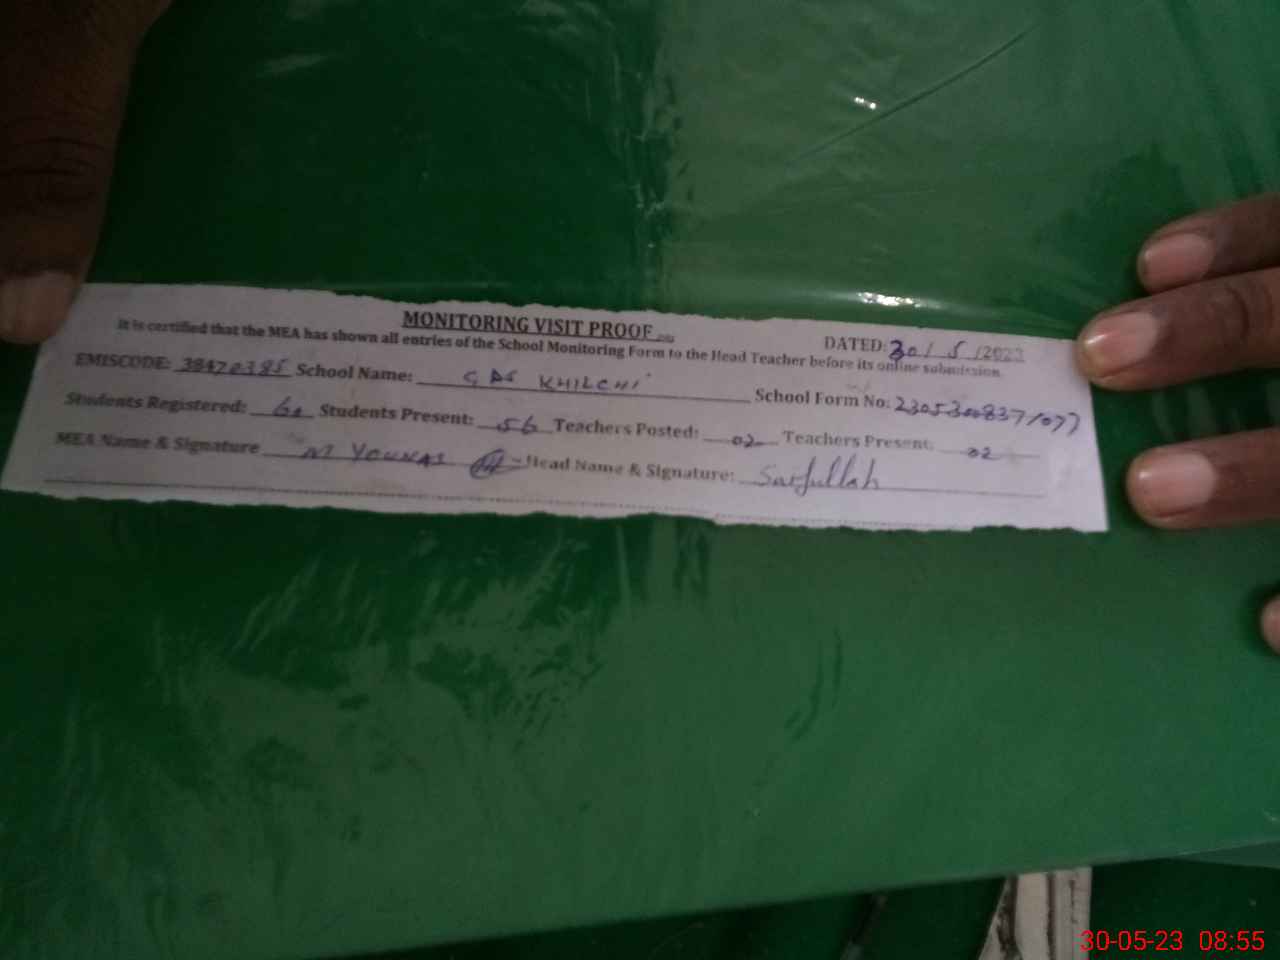 MONITORING VISIT PROOF
DATED: 30/5/2023
It is certified that the MEA has shown all entries of the School Monitoring Form to the Head Teacher before its online submission.
EMISCODE: 38470385 School Name: GPS KHILCHI School Form No: 23053008371077
Students Registered: 60 Students Present: 56 Teachers Posted: 02 Teachers Present: 02
MEA Name & Signature M YOUNAS Head Name & Signature: Saifullah
30-05-23 08:55